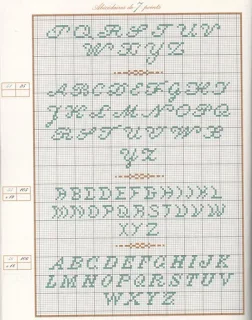 Abécédaires de 7 points
P Q R S T U V
W X Y Z
A B C D E F G H I
J K L M N O P Q
R S T U V W X
Y Z
A B C D E F G H I J K L
M N O P Q R S T U V W
X Y Z
A B C D E F G H I J K
L M N O P Q R S T U V
W X Y Z